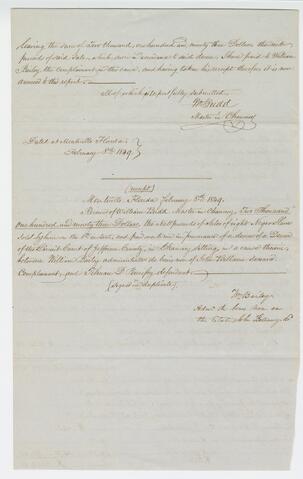 leaving the sum of Two thousand, one hundred and ninety three Dollars the nett
proceeds of said Sale. which sum in accordance to said decree, I have paid to William
Bailey, the complainant in this cause, and having taken his receipt therefor it is now
annexed to this report.
All of which is respectfully submitted.
Wm Budd
Master in Chancery
Dated at Monticello Florida
February 8th 1849.
(receipt)
Monticello, Florida, February 8th 1849.
Received of William Budd Master in Chancery, Two Thousand
one hundred and ninety three Dollars, the nett proceeds of sales of eight Negro Slaves
Sold by him on the 5th instant, and paid unto me in pursuance of the decree of a Decree
of the Circuit Court of Jefferson County, in Chancery sitting, in a cause therein
between William Bailey administrator de bonis non of John Bellamy deceased
Complainant, and defendant.
(signed in duplicate)
Wm Bailey
Admr de bonis non on
the Estate John Bellamy